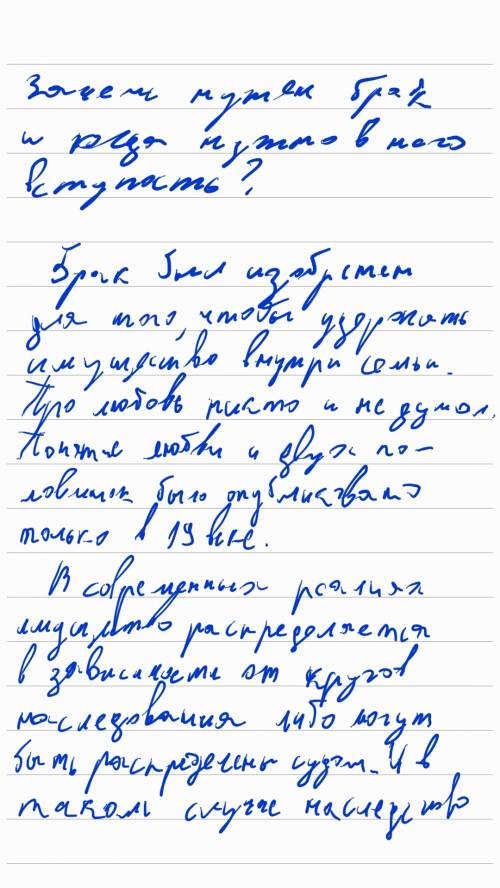 Зачем нужен брак
и когда нужно в него
вступать?
Брак был изобретен
для того, чтобы удержать
имущество внутри семьи.
Про любовь никто и не думал.
Понятие любви и двух по-
ловинок было опубликовано
только в 19 веке.
В современных реалиях
имущество распределяется
в зависимости от кругов
наследования либо могут
быть распределены судом. И в
таком случае наследство